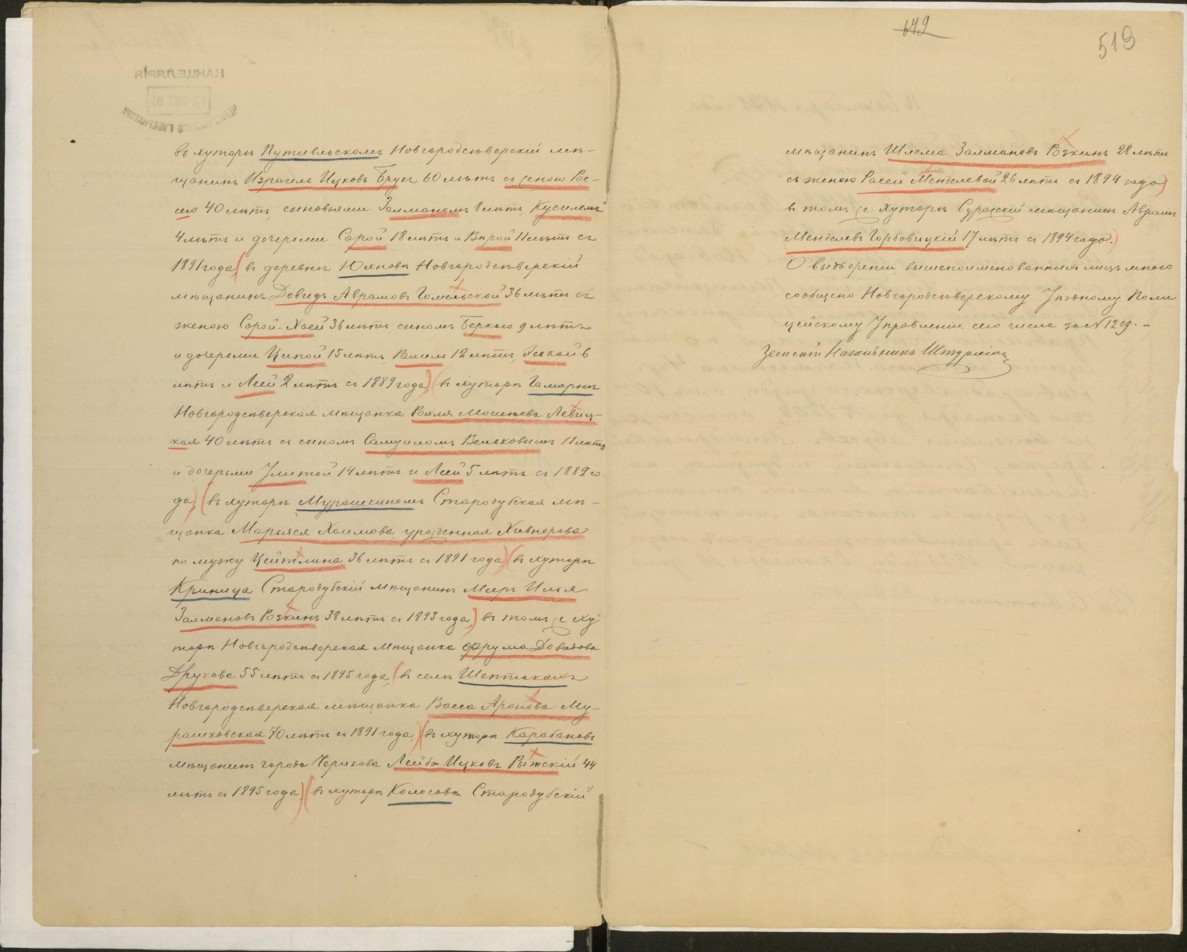 въ хуторѣ Путивльскомъ Новгородсѣверскій мѣ-
щанинъ Израель Ицковъ Брукъ 60 лѣтъ съ женою Рос-
сею 40 лѣтъ сыновьями Залманомъ 8 лѣтъ Кусилемъ
4 лѣтъ и дочерьми Сарой 18 лѣтъ и Вѣрой 11 лѣтъ съ
1891 года) въ деревнѣ Юхновѣ Новгородсѣверскій
мѣщанинъ Довидъ Абрамовъ Гомельской 36 лѣтъ съ
женою Сарой-Хаей 36 лѣтъ сыномъ Беркою 9 лѣтъ
и дочерьми Ципой 15 лѣтъ 12 лѣтъ 6
лѣтъ и Леей 2 лѣтъ съ 1889 года) (въ хуторѣ Гамарнѣ
Новгородсѣверская мѣщанка Рохля Моисеева Левиц-
кая 40 лѣтъ съ сыномъ Самуиломъ 11 лѣтъ
и дочерьми 14 лѣтъ и Леей 5 лѣтъ съ 1889 го-
да) (въ хуторѣ Мурашкиномъ Стародубская мѣ-
щанка Марьяся Хаимова урожденная
по мужу Цейтлина 36 лѣтъ съ 1891 года) (въ хуторѣ
Криница Стародубскій мѣщанинъ Мееръ Илья
Залмановъ Розкинъ 38 лѣтъ съ 1893 года) въ томъ же ху-
торѣ Новгородсѣверская мѣщанка Фрума Довидова
Друкова 55 лѣтъ съ 1895 года, (въ селѣ Шептакахъ
Новгородсѣверская мѣщанка Васса Аронова Му-
рашковская 70 лѣтъ съ 1891 года,) (въ хуторѣ Карабановѣ
мѣщанинъ города Чернигова Лейба Ицковъ 44
лѣтъ съ 1895 года) (въ хуторѣ Колосовѣ Стародубскій
519
мѣщанинъ Шлема Залмановъ Розкинъ 28 лѣтъ
съ женою Расей Менделевой 26 лѣтъ съ 1894 года)
въ томъ же хуторѣ Суражскій мѣщанинъ Абрамъ
Менделевъ Горбовицкій 17 лѣтъ съ 1894 года.)
О выдвореніи вышепоименованныхъ лицъ мною
сообщено Новгородсѣверскому Уѣздному Поли
цейскому Управленію сего числа за № 1209.–
Земскій Начальникъ